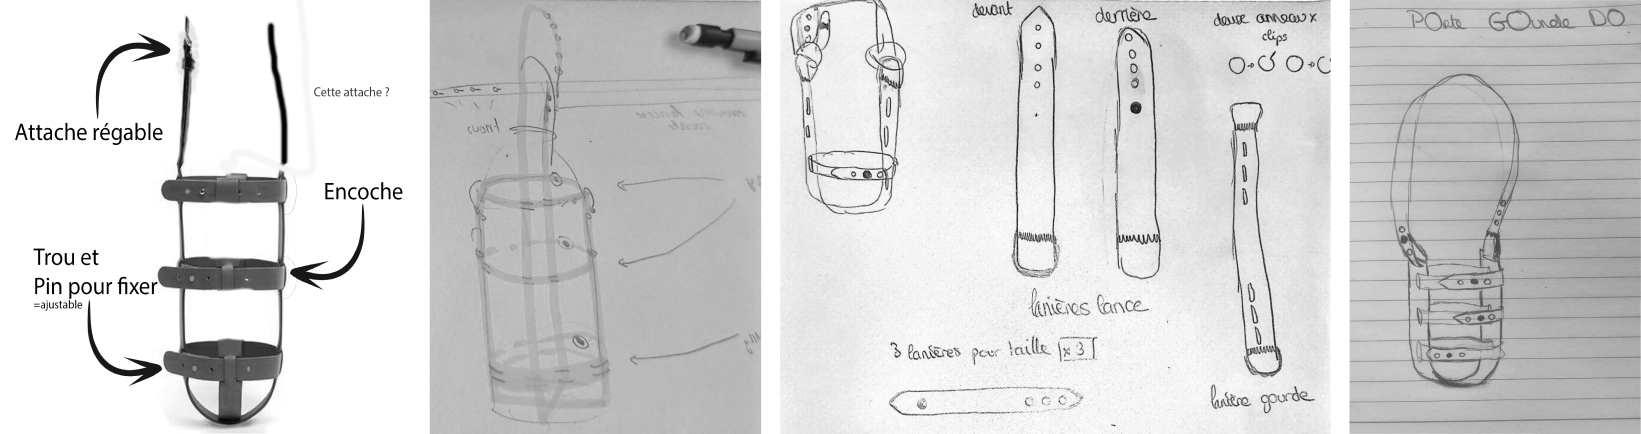 Cette attache ?
Attache régable
Encoche
Trou et
Pin pour fixer
=ajustable
devant
derrière
deux anneaux
clips
lanières lance
3 lanières pour taille x 3
lanière gourde
POrte GOurde DO